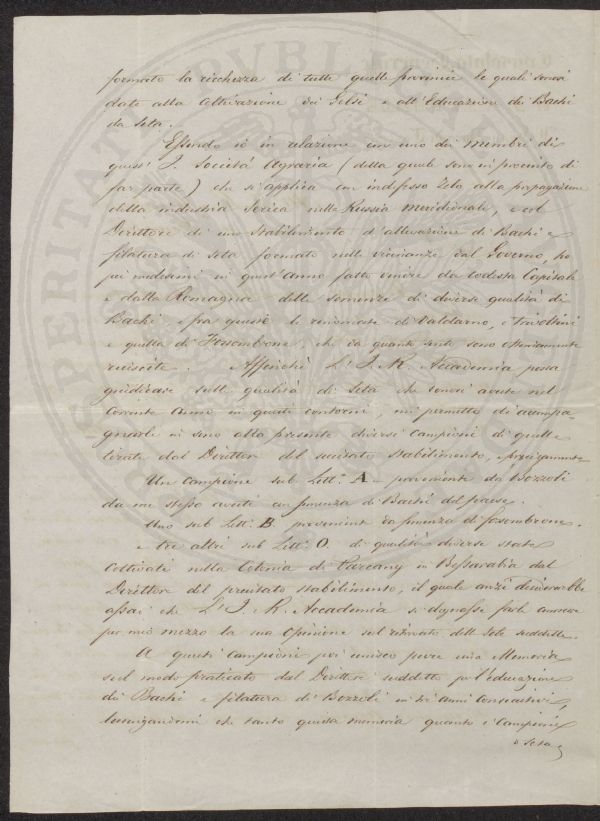 formato la ricchezza di tutte quelle provincie le quali sonosi
date alla coltivazione dei Gelsi e all'Educazione dei Bachi
da Seta.
Essendo io in relazione con uno dei membri di
quest' I. Società Agraria (della quale sono in procinto di
far parte) che si applica con indefesso Zelo alla propagazione
della industria Serica nella Russia meridionale, e col
Direttore di uno Stabilimento d'allevazione di Bachi e
filatura di Seta formato nelle vicinanze dal Governo, ho
pei medesimi in quest'anno fatto venire da codesta Capitale
e dalla Romagna delle semenze di diverse qualità di
Bachi e fra queste le rinomate di Valdarno, e Trivoltini
e quella di Fossombrone, che da quanto sento sono ottimamente
reuscite. Affinchè L'I. R. Accademia possa
giudicare sulle qualità di Seta che sonosi avute nel
corrente anno in questi contorni, mi permetto di accompa-
gnarle in seno alla presente diversi campioni di quelle
tirate dal Direttore del succitato Stabilimento, e precisamente
Un Campione sub Lett.a A proveniente da Bozzoli
da me stesso avuti con semenza di Bachi del paese.
Uno sub Lett.a B proveniente da semenza di fossombrone.
e tre altri sub Lett.a O. di qualità diverse state
coltivate nella Colonia di Parcany in Bessarabia dal
Direttore del precitato Stabilimento, il quale anzi desidererebbe
assai che L'I. R. Accademia si degnasse farle conoscere
per mio mezzo la sua Opinione sul ritrovato delle Sete suddette.
A questi Campioni poi unisco pure una Memoria
sul modo praticato dal Direttore suddetto per l'educazione
dei Bachi e filatura di Bozzoli in tre anni consecutivi,
lusingandomi che tanto questa memoria quanto i Campioni
di Seta
PROSPERITATI PUBLICAE